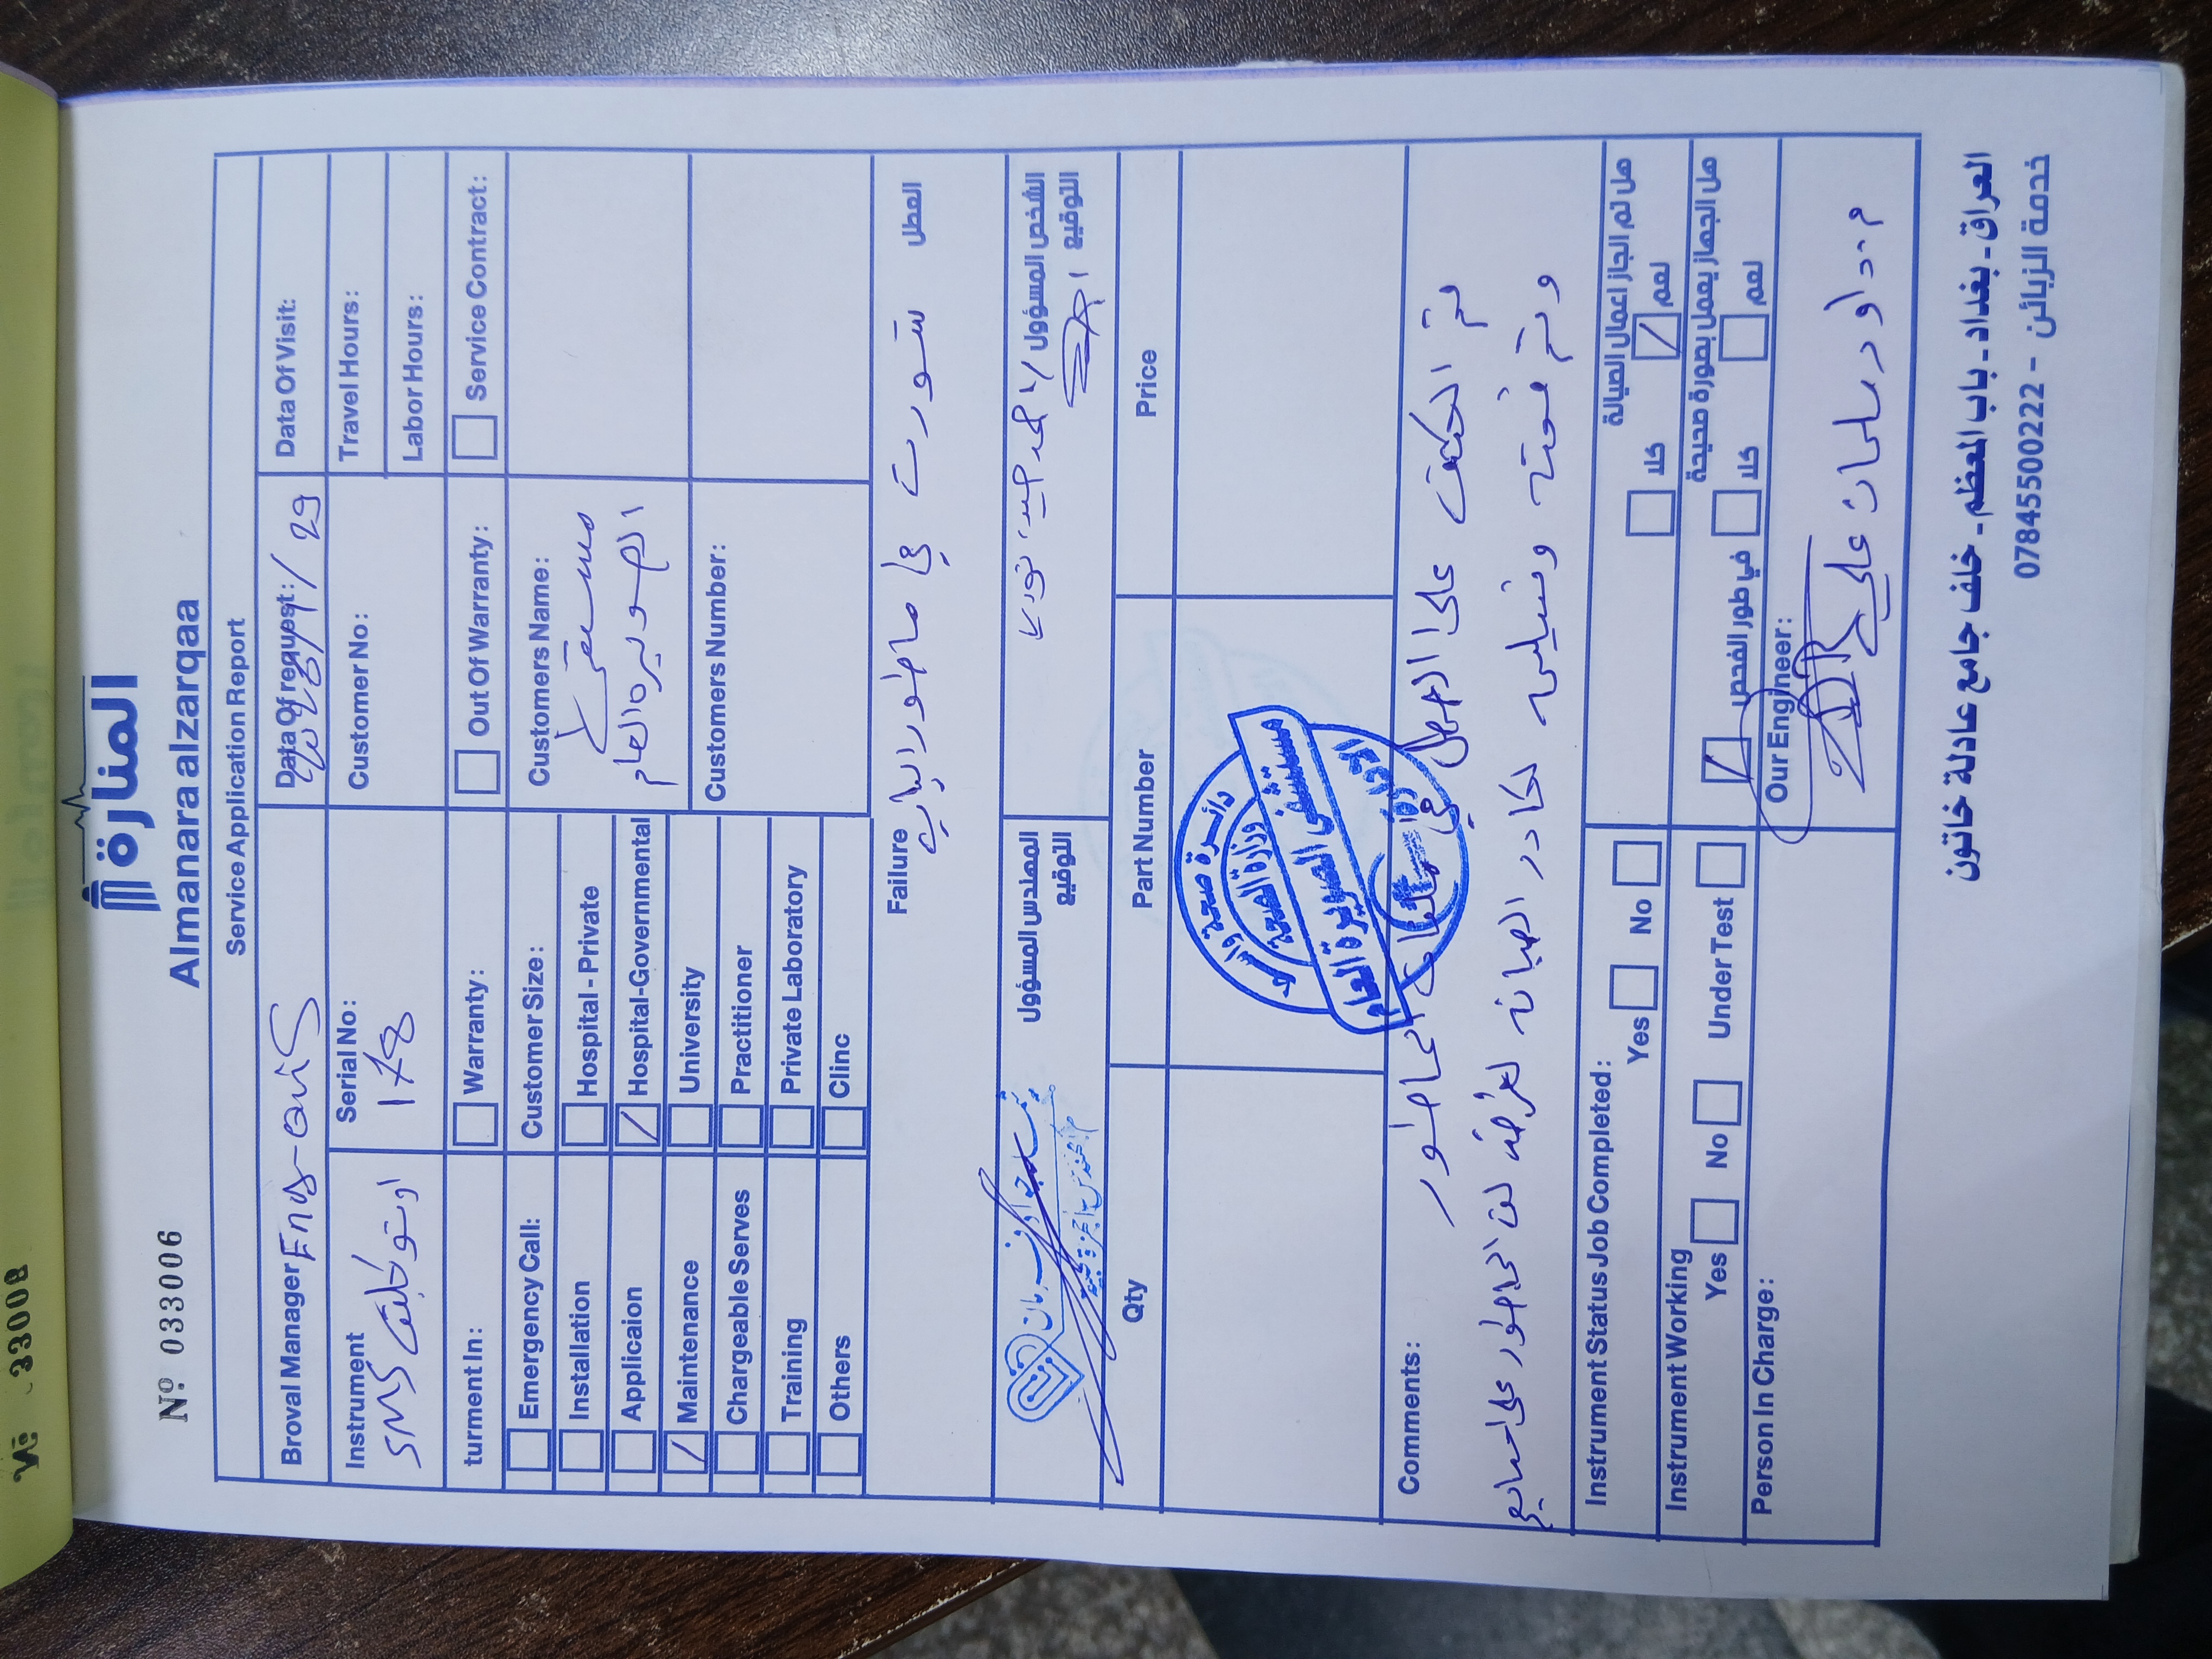 Nº 033006
المنارة
Almanara alzarqaa
Service Application Report
Broval Manager Eng-
Data Of request: / 29
Data Of Visit:
Instrument
SMS اوتوكليف
Serial No:
178
Customer No:
Travel Hours:
Labor Hours:
turment In:
Warranty:
Out Of Warranty:
Service Contract:
Emergency Call:
Installation
Applicaion
Maintenance
Chargeable Serves
Training
Others
Customer Size:
Hospital - Private
Hospital-Governmental
University
Practitioner
Private Laboratory
Clinc
Customers Name:
مستشفى
الصويره العام
Customers Number:
Failure
العطل
شورت في ماطور الباب
المهندس المسؤول
التوقيع
الشخص المسؤول /
التوقيع
Qty
Part Number
Price
دائرة صحة واسط
وزارة الصحة
مستشفى الصويرة العام
الادارة
Comments:
تم الكشف على العطل في ماطور
وتم فتحه وتسليمه لكادر الصيانه لغرض لف الماطور على حسابهم
Instrument Status Job Completed:
Yes
No
هل تم انجاز اعمال الصيانة
كلا
نعم
Instrument Working
Yes
No
Under Test
هل الجهاز يعمل بصورة صحيحة
في طور الفحص
كلا
نعم
Person In Charge:
Our Engineer:
م. داود سلمان علي
العراق - بغداد - باب المعظم - خلف جامع عادلة خاتون
خدمة الزبائن - 07845500222